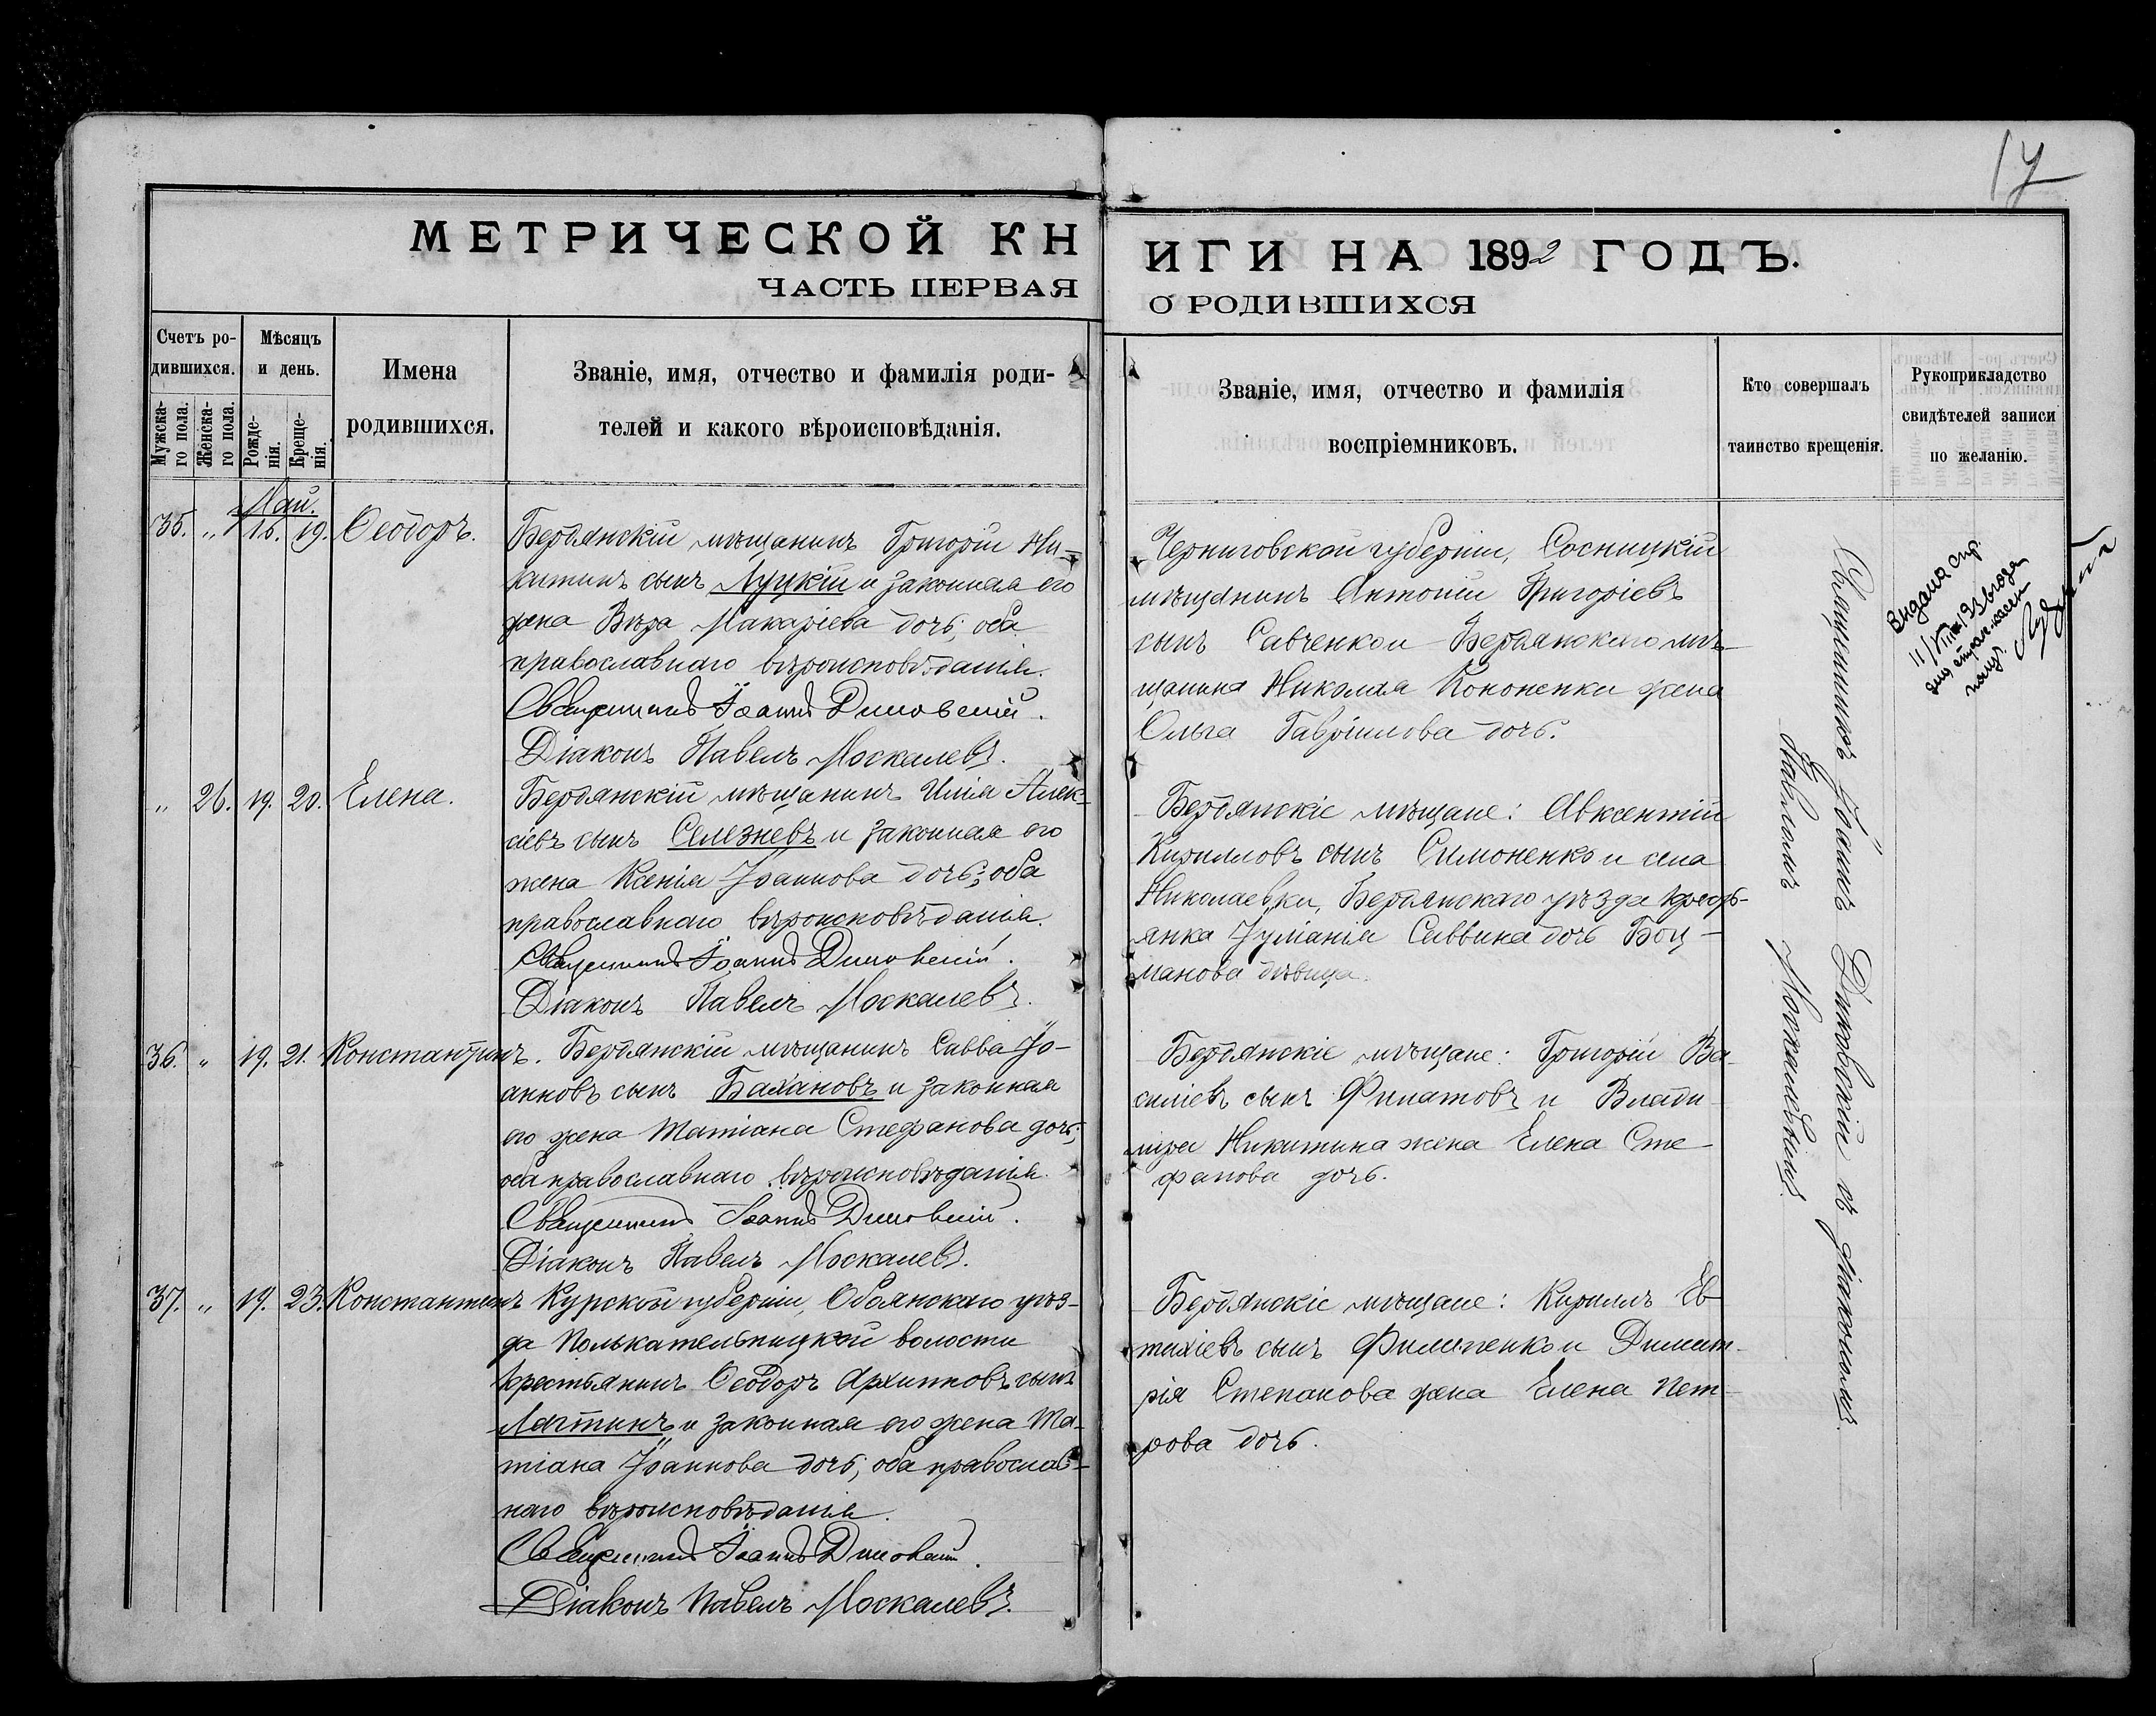 17
МЕТРИЧЕСКОЙ КН
ИГИ НА 1892 ГОДЪ.
ЧАСТЬ ПЕРВАЯ
О РОДИВШИХСЯ
Счетъ ро-
дившихся.
Мужска-
го пола.
Женска-
го пола.
Мѣсяцъ
и день.
Рожде-
нія.
Креще-
нія.
Имена
родившихся.
Званіе, имя, отчество и фамилія роди-
телей и какого вѣроисповѣданія.
Званіе, имя, отчество и фамилія
воспріемниковъ.
Кто совершалъ
таинство крещенія.
Рукоприкладство
свидѣтелей записи
по желанію.
Май.
35. " 16. 19. Ѳеодоръ.
Бердянскій мѣщанинъ Григорій Ни-
китинъ сынъ Луцкій и законная его
жена Вѣра Макаріева дочь, оба
православнаго вѣроисповѣданія.
Священникъ Іоаннъ Диковскій.
Діаконъ Павелъ Москалевъ.
Черниговской губерніи, Сосницкій
мѣщанинъ Антоній Григоріевъ
сынъ Савченко и Бердянскаго мѣ-
щанина Николая Кононенки жена
Ольга Гавріилова дочь.
" 26. 19. 20. Елена.
Бердянскій мѣщанинъ Илія Алек-
сіевъ сынъ Селезневъ и законная его
жена Ксенія Іоаннова дочь; оба
православнаго вѣроисповѣданія.
Священникъ Іоаннъ Диковскій.
Діаконъ Павелъ Москалевъ.
Бердянскіе мѣщане: Авксентій
Кирилловъ сынъ Симоненко и села
Николаевки, Бердянскаго уѣзда крестъ-
янка Іуліанія Саввина дочь Боц-
манова дѣвица.
36. " 19. 21. Константинъ.
Бердянскій мѣщанинъ Савва Іо-
анновъ сынъ Бахановъ и законная
его жена Татіана Стефанова дочь,
оба православнаго вѣроисповѣданія.
Священникъ Іоаннъ Диковскій.
Діаконъ Павелъ Москалевъ.
Бердянскіе мѣщане: Григорій Ва-
силіевъ сынъ Филатовъ и Влади-
міра Никитина жена Елена Сте-
фанова дочь.
37. " 19. 23. Константинъ
Курской губерніи, Обоянскаго уѣз-
да волости
крестьянинъ Ѳеодоръ Архиповъ сынъ
Лагтинъ и законная его жена Та-
тіана Іоаннова дочь, оба православ-
наго вѣроисповѣданія.
Священникъ Іоаннъ Диковскій.
Діаконъ Павелъ Москалевъ.
Бердянскіе мѣщане: Кириллъ Ев-
тихіевъ сынъ Филипенко и Димит-
рія Степанова жена Елена Пет-
рова дочь.
Священникъ Іоаннъ Диковскій съ діакономъ
Павломъ Москалевымъ.
Видана спр.
Луцкий